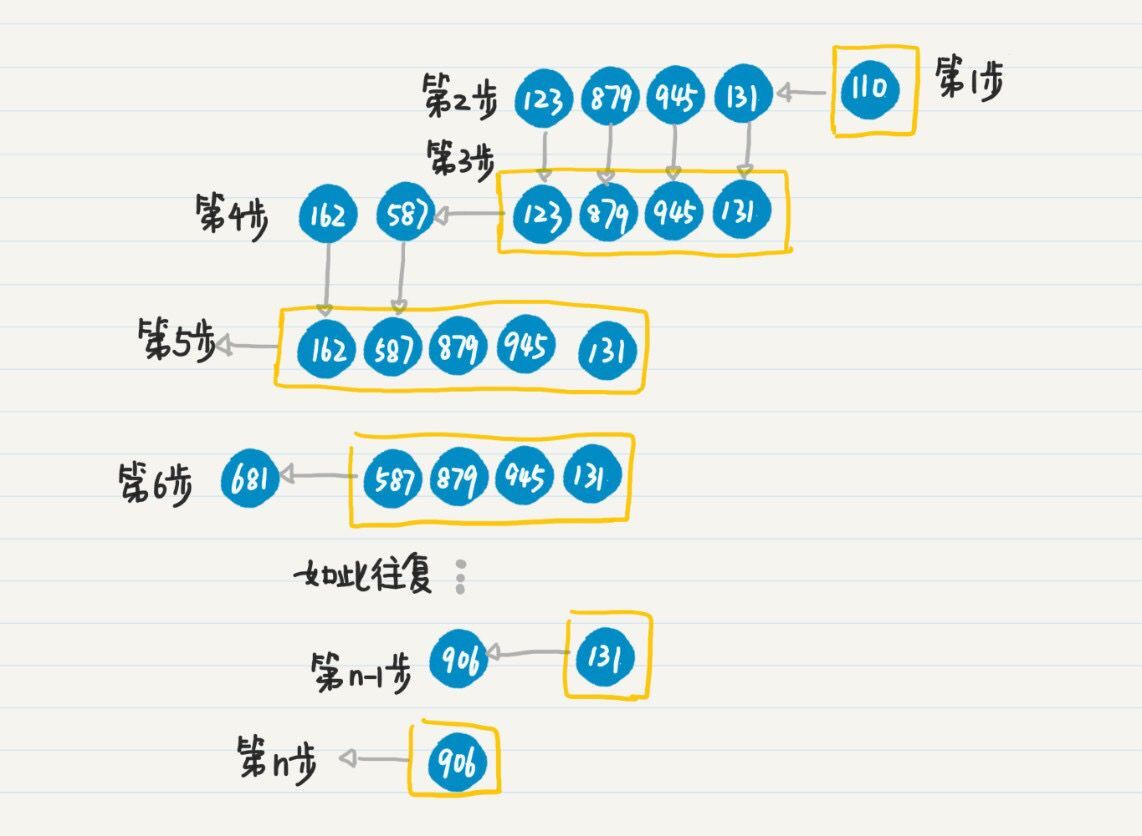 第2步 123 879 945 131 110 第1步
第3步
第4步 162 587 123 879 945 131
第5步 162 587 879 945 131
第6步 681 587 879 945 131
如此往复
第n-1步 906 131
第n步 906